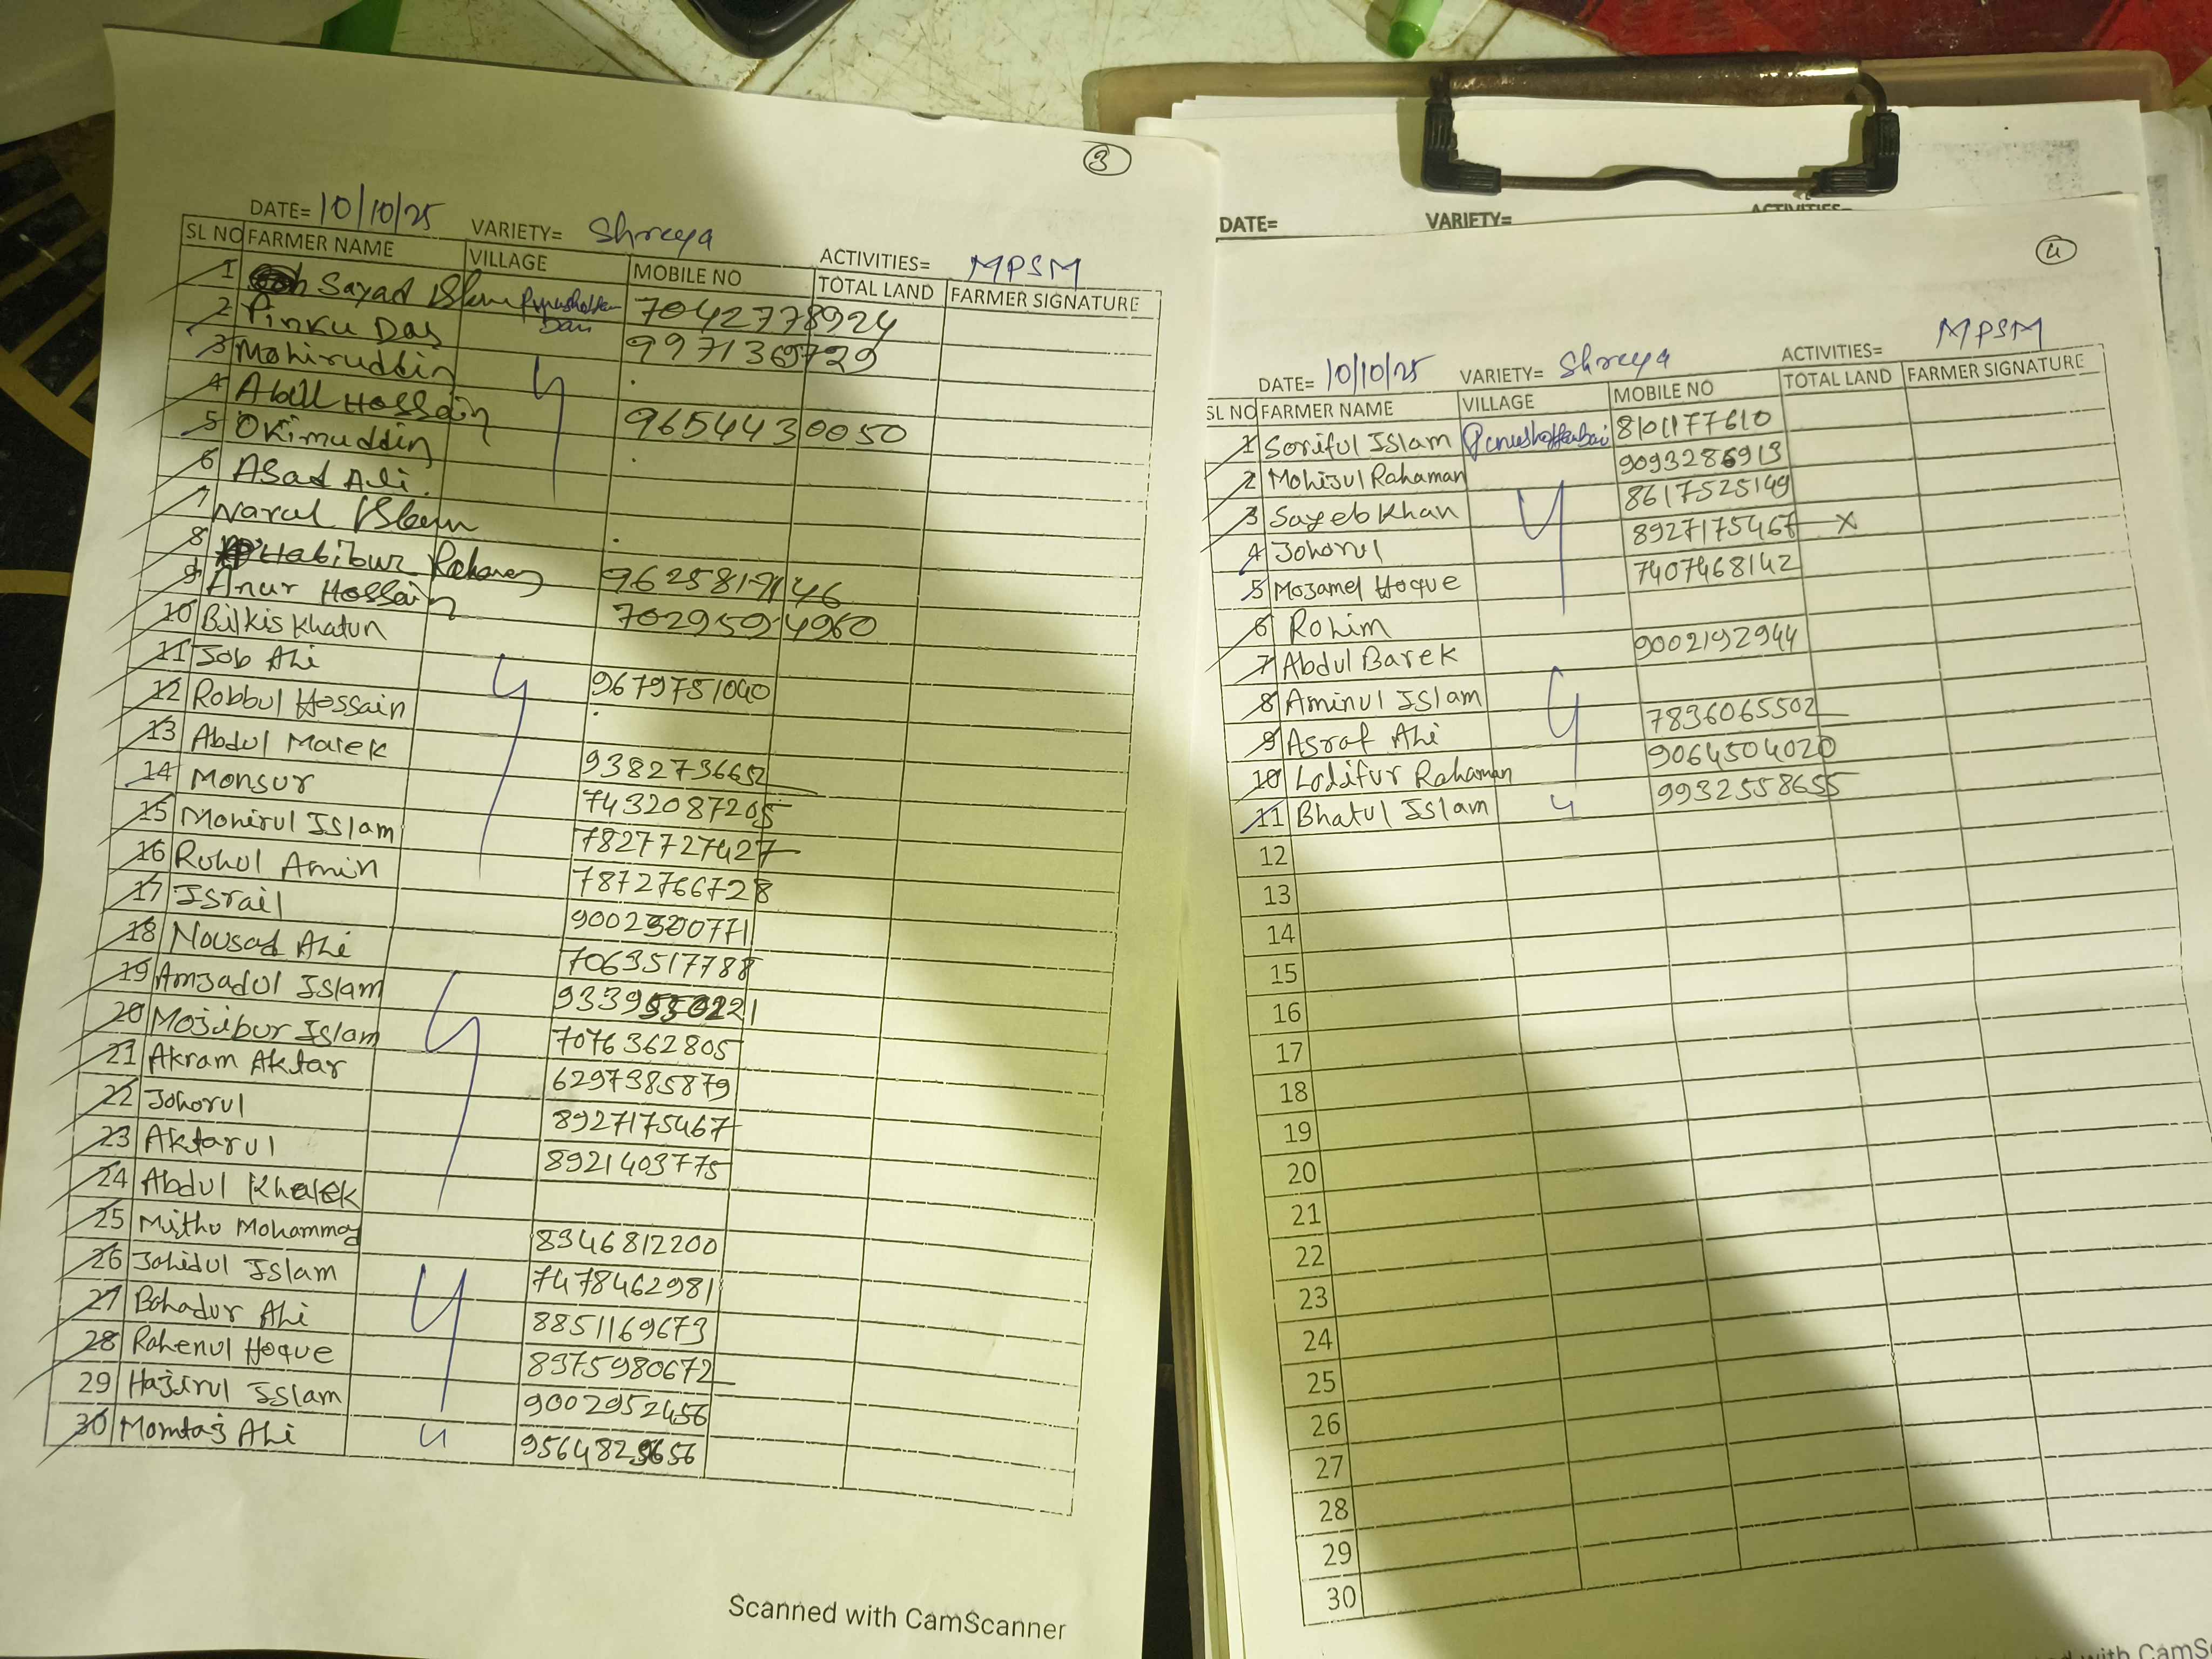 3
DATE= 10/10/25 VARIETY= Shreya ACTIVITIES= MPSM
SL NO FARMER NAME VILLAGE MOBILE NO TOTAL LAND FARMER SIGNATURE
1 Sayad Islam 7042778924
2 Pinku Das 9971369729
3 Mohiruddin
4 Abdl Hossain 9654430050
5 Okimuddin
6 Asad Ali
7 Narul Islam
8 Habibur Rahaman 9625817146
9 Anur Hossain 7029594960
10 Bilkis Khatun
11 Job Ali 9679751040
12 Robbul Hossain
13 Abdul Marek 9382736652
14 Monsur 7432087205
15 Mohirul Islam 7827727427
16 Ruhul Amin 7872766728
17 Israil 9002300771
18 Nousad Ali 7063517788
19 Amjadul Islam
20 Mojibur Islam 7076362805
21 Akram Aktar 6297385879
22 Johorul 8927175467
23 Aktarul 8921403775
24 Abdul Khalek
25 Mithu Mohammad 8346812200
26 Johidul Islam 7478462981
27 Bahadur Ali 8851169673
28 Rahenul Hoque 8375980672
29 Hajirul Islam 9002952456
30 Momtaj Ali
Scanned with CamScanner
DATE= VARIETY= ACTIVITIES=
4
DATE= 10/10/25 VARIETY= Shreya ACTIVITIES= MPSM
SL NO FARMER NAME VILLAGE MOBILE NO TOTAL LAND FARMER SIGNATURE
1 Soriful Islam 8101177610
2 Mohijul Rahaman 9093286913
3 Sayeb Khan 8617525149
4 Johorul 8927175467 X
5 Mojamel Hoque 7407468142
6 Rohim
7 Abdul Barek 9002192944
8 Aminul Islam
9 Asraf Ali 7836065502
10 Lotifur Rahaman 9064504020
11 Bhatul Islam 9932558655
12
13
14
15
16
17
18
19
20
21
22
23
24
25
26
27
28
29
30
with CamS